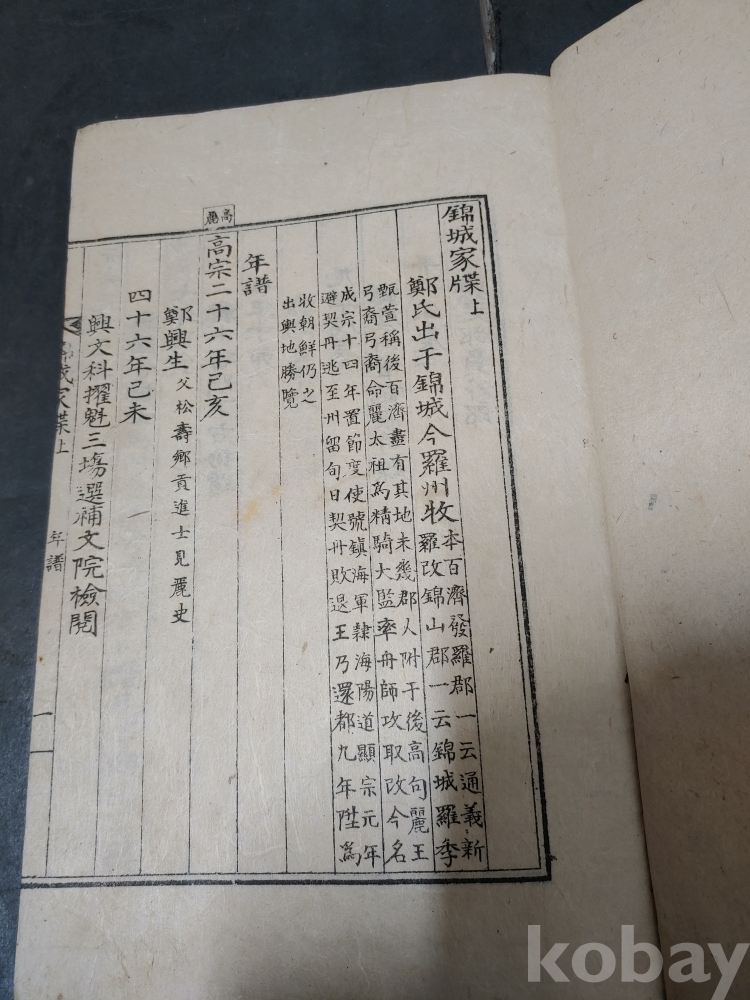 錦城家牒上
鄭氏出于錦城今羅州牧
本百濟發羅郡一云通義新
羅改錦山郡一云錦城羅季
甄萱稱後百濟盡有其地未幾郡人附于後高句麗王
弓裔弓裔命麗太祖爲精騎大監率舟師攻取改今名
成宗十四年置節度使號鎭海軍隸海陽道顯宗元年
避契丹逃至州留旬日契丹敗退王乃還都九年陞爲
牧朝鮮仍之
出輿地勝覽
年譜
高麗
高宗二十六年己亥
鄭興生父松壽鄕貢進士見麗史
四十六年己未
興文科擢魁三場選補文院檢閱
錦城家牒上
年譜
一
kobay